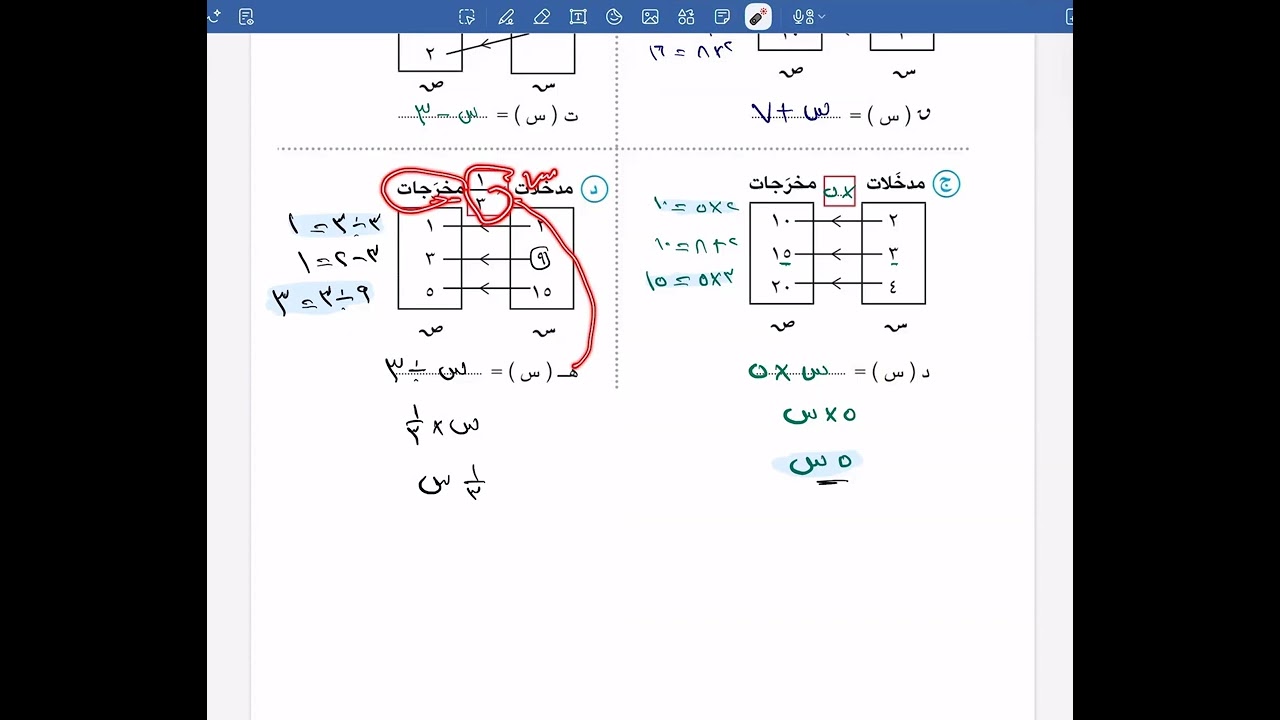 ٢
ص
س
ص
١٦ = ٨×٢
ن ( س ) = س + ٧
ت ( س ) = س − ٣
ج
مدخَلات
×٥
مخرَجات
٢
١٠
٣
١٥
٤
٢٠
س
ص
٢×٥ = ١٠
٢+٨ = ١٠
٣×٥ = ١٥
د ( س ) = س × ٥
٥ × س
٥ س
د
مدخَلات
س
١/٣
مخرَجات
٣
١
٩
٣
١٥
٥
س
ص
٣ ÷ ٣ = ١
٣ − ٢ = ١
٩ ÷ ٣ = ٣
هـ ( س ) = س ÷ ٣
س × ١/٣
١/٣ س